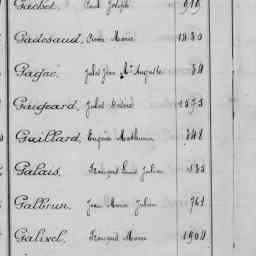 Gachet, Paul Joseph 919
Gadesaud, Marie 1480
Gagné, Jules Jean Mie Auguste 34
Gaugeard, Jules 1573
Guillard, Eugène Mathurin 348
Galais, François Louis Julien 535
Galbrun, Jean Marie Julien 761
Galivel, François Marie 1904